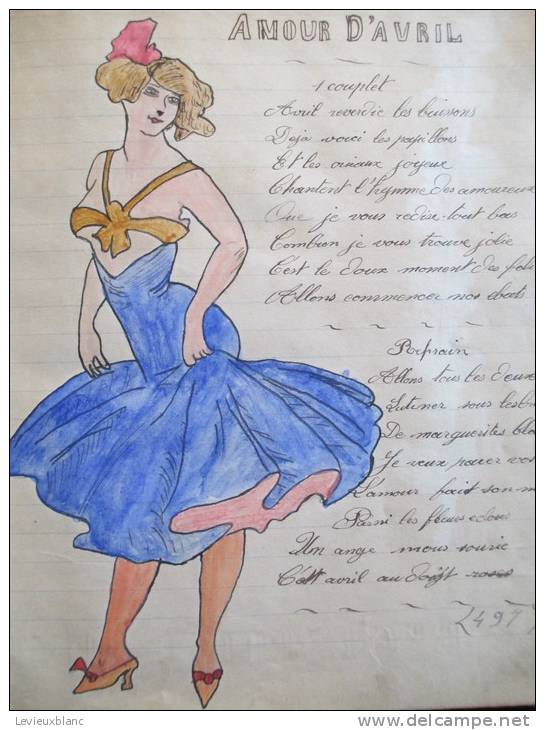 AMOUR D'AVRIL
1 couplet
Avril reverdie les buissons
Déjà voici les papillons
Et les oiseaux joyeux
Chantent l'hymne des amoureux
Que je vous redise tout bas
Combien je vous trouve jolie
C'est le doux moment des foli
Allons commencer nos ébats
Refrain
Allons tous les deux
Lutiner sous les
De marguerites bla
Je veux parer vos
L'amour fait son
Parmi les fleurs
Un ange nous sourie
C'est avril au doigt roses
2497
Levieuxblanc
www.delcampe.net